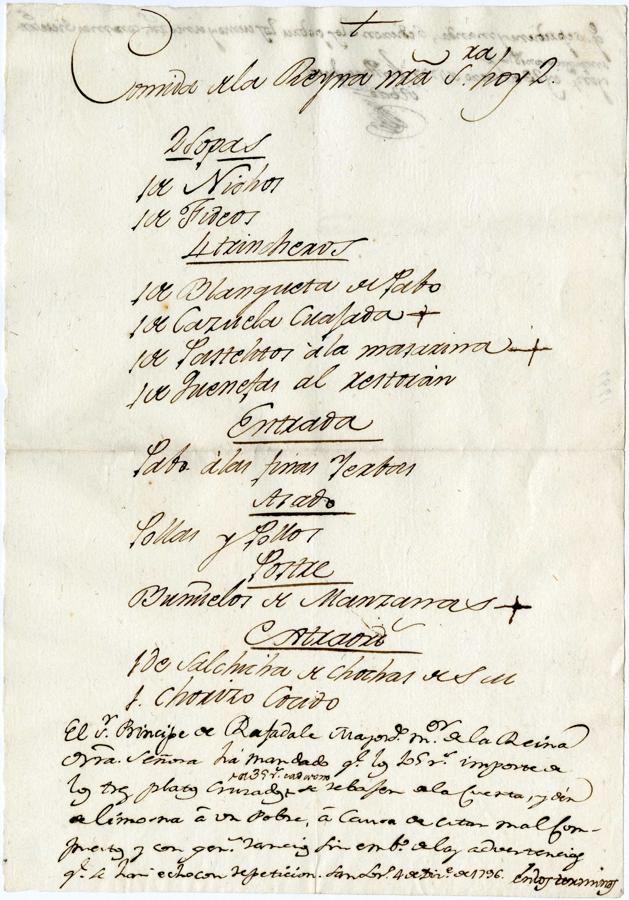 Comida de la Reyna n̄rā S.ra hoy 2.
2 Sopas
1 de Nichos
1 de Fideos
4 trincheros
1 de Blanqueta de Pabo
1 de Cazuela Cuajada +
1 de Pastelitos a la mazarina +
1 de Quenefas al restorán
Entrada
Pabo a las finas Yerbas
Asado
Pollas y Pollos
Postre
Buñuelos de Manzanas +
Extraord.
1 de Salchicha de chochas de S M
1. Chorizo Cocido
El S.r Principe de Rafadale Mayord. m.or de la Reina
Ntra. Señora há mandado q.e los 105 r.s importe de
a 35 r.s cada uno
los tres platos Cruzados se rebajen de la Cuenta, y dén
de limosna á un Pobre, á Causa de estar mal Com-
puestos y con gen. rancio sin emb.o de las advertencias
q.e se han echo con repeticion. San Lor.o 4 de de 1796. En los terminos